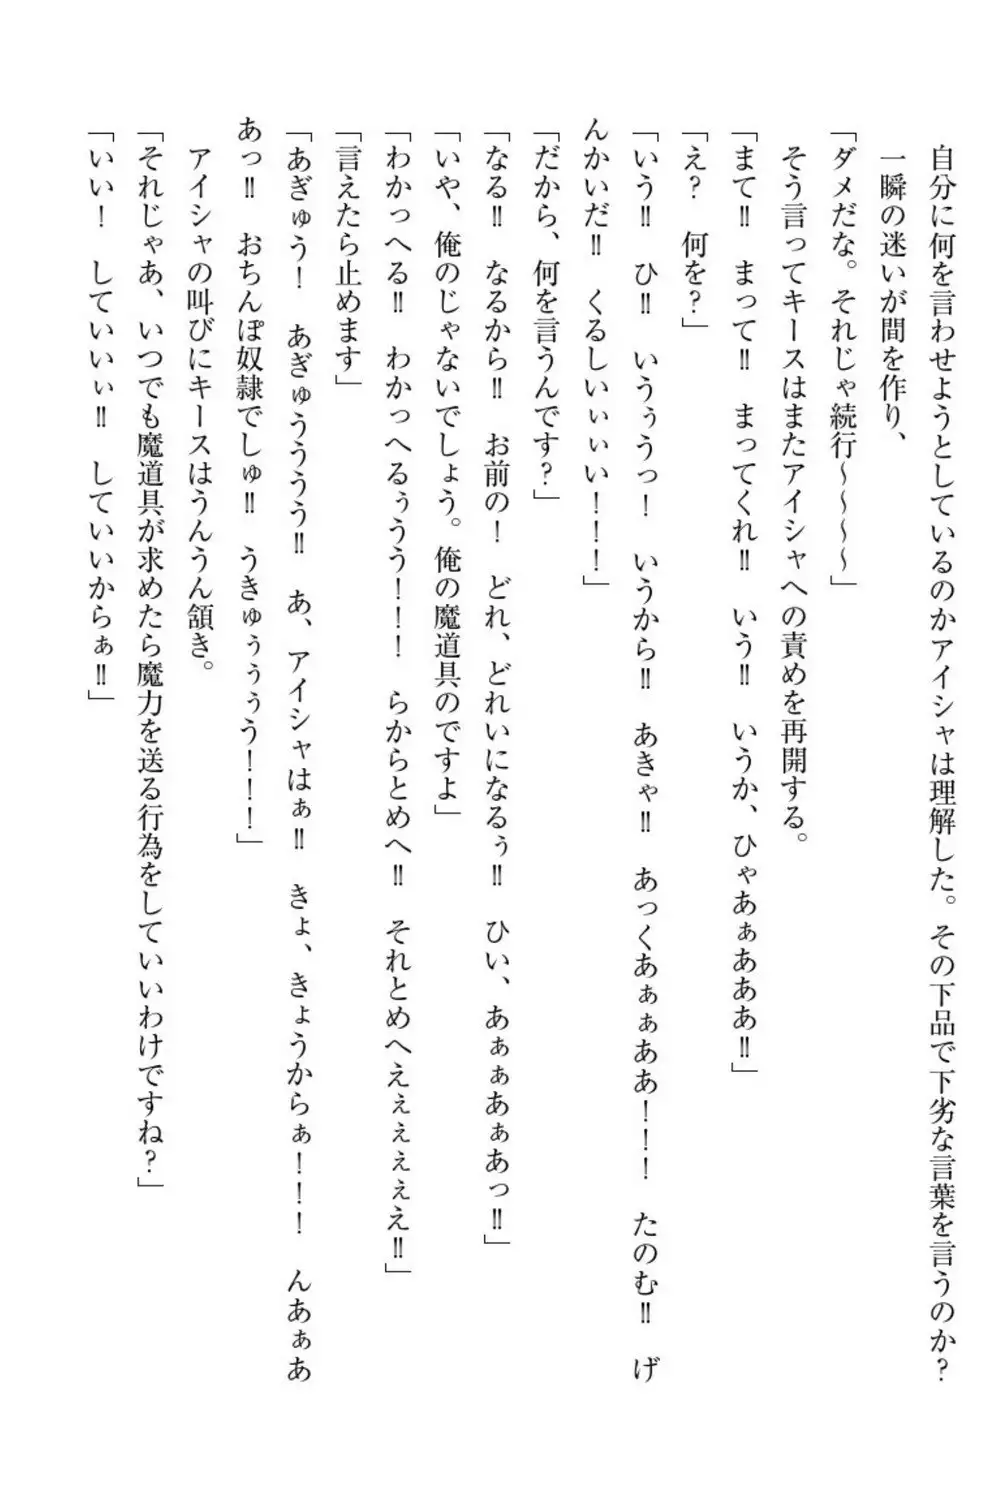 自分に何を言わせようとしているのかアイシャは理解した。その下品で下劣な言葉を言うのか？
　一瞬の迷いが間を作り、
「ダメだな。それじゃ続行～～～～」
　そう言ってキースはまたアイシャへの責めを再開する。
「まて‼　まって‼　まってくれ‼　いう‼　いうか、ひゃあぁああ‼」
「え？　何を？」
「いう‼　ひ‼　いうぅうっ！　いうから‼　あきゃ‼　あっくあぁぁああ！！！　たのむ‼　げ
んかいだ‼　くるしいぃぃい！！！」
「だから、何を言うんです？」
「なる‼　なるから‼　お前の！　どれ、どれいになるぅ‼　ひい、あぁぁあぁあっ‼」
「いや、俺のじゃないでしょう。俺の魔道具のですよ」
「わかっへる‼　わかっへるぅうう！！！　らからとめへ‼　それとめへえぇぇぇぇえ‼」
「言えたら止めます」
「あぎゅう！　あぎゅうううう‼　あ、アイシャはぁ‼　きょ、きょうからぁ！！！　んあぁあ
あっ‼　おちんぽ奴隷でしゅ‼　うきゅぅぅぅう！！！」
　アイシャの叫びにキースはうんうん頷き。
「それじゃあ、いつでも魔道具が求めたら魔力を送る行為をしていいわけですね？」
「いい！　していいぃ‼　していいからぁ‼」